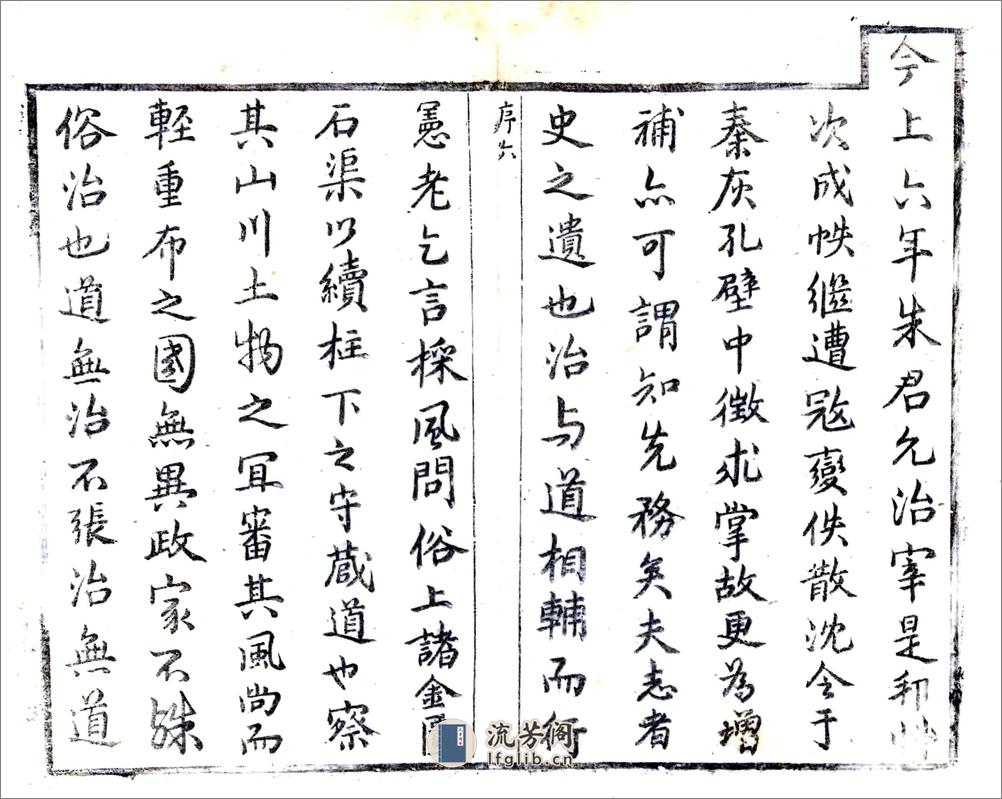 今上六年朱君允治宰是邦
次成帙継遭寇變佚散沈令于
秦灰孔壁中徵求掌故更為增
補亦可謂知先務矣夫志者
史之遺也治与道相輔而行
序六
憲老乞言採風問俗上諸金匱
石渠以續柱下之守蔵道也察
其山川土物之宜審其風尚而
輕重布之國無異政家不殊
俗治也道無治不張治無道
流芳阁
lfglib.cn